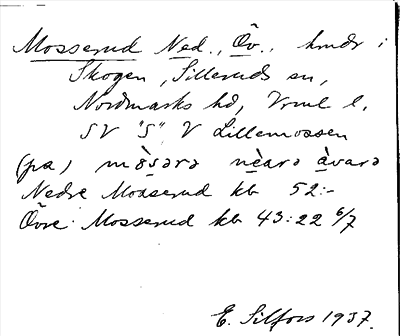 Mosserud Ned., Öv., hmdr i
Skogen, Silleruds sn,
Nordmarks hd, Vrml l.
SV "S" V Lillemossen
(pa) mò̤sərə nèarə àvarə
Nedre Mosserud kb 52:-
Övre Mosserud kb 43:22 6/7
E. Silfors 1937.